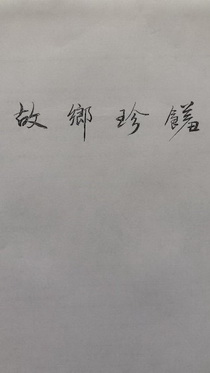 故鄉珍饈